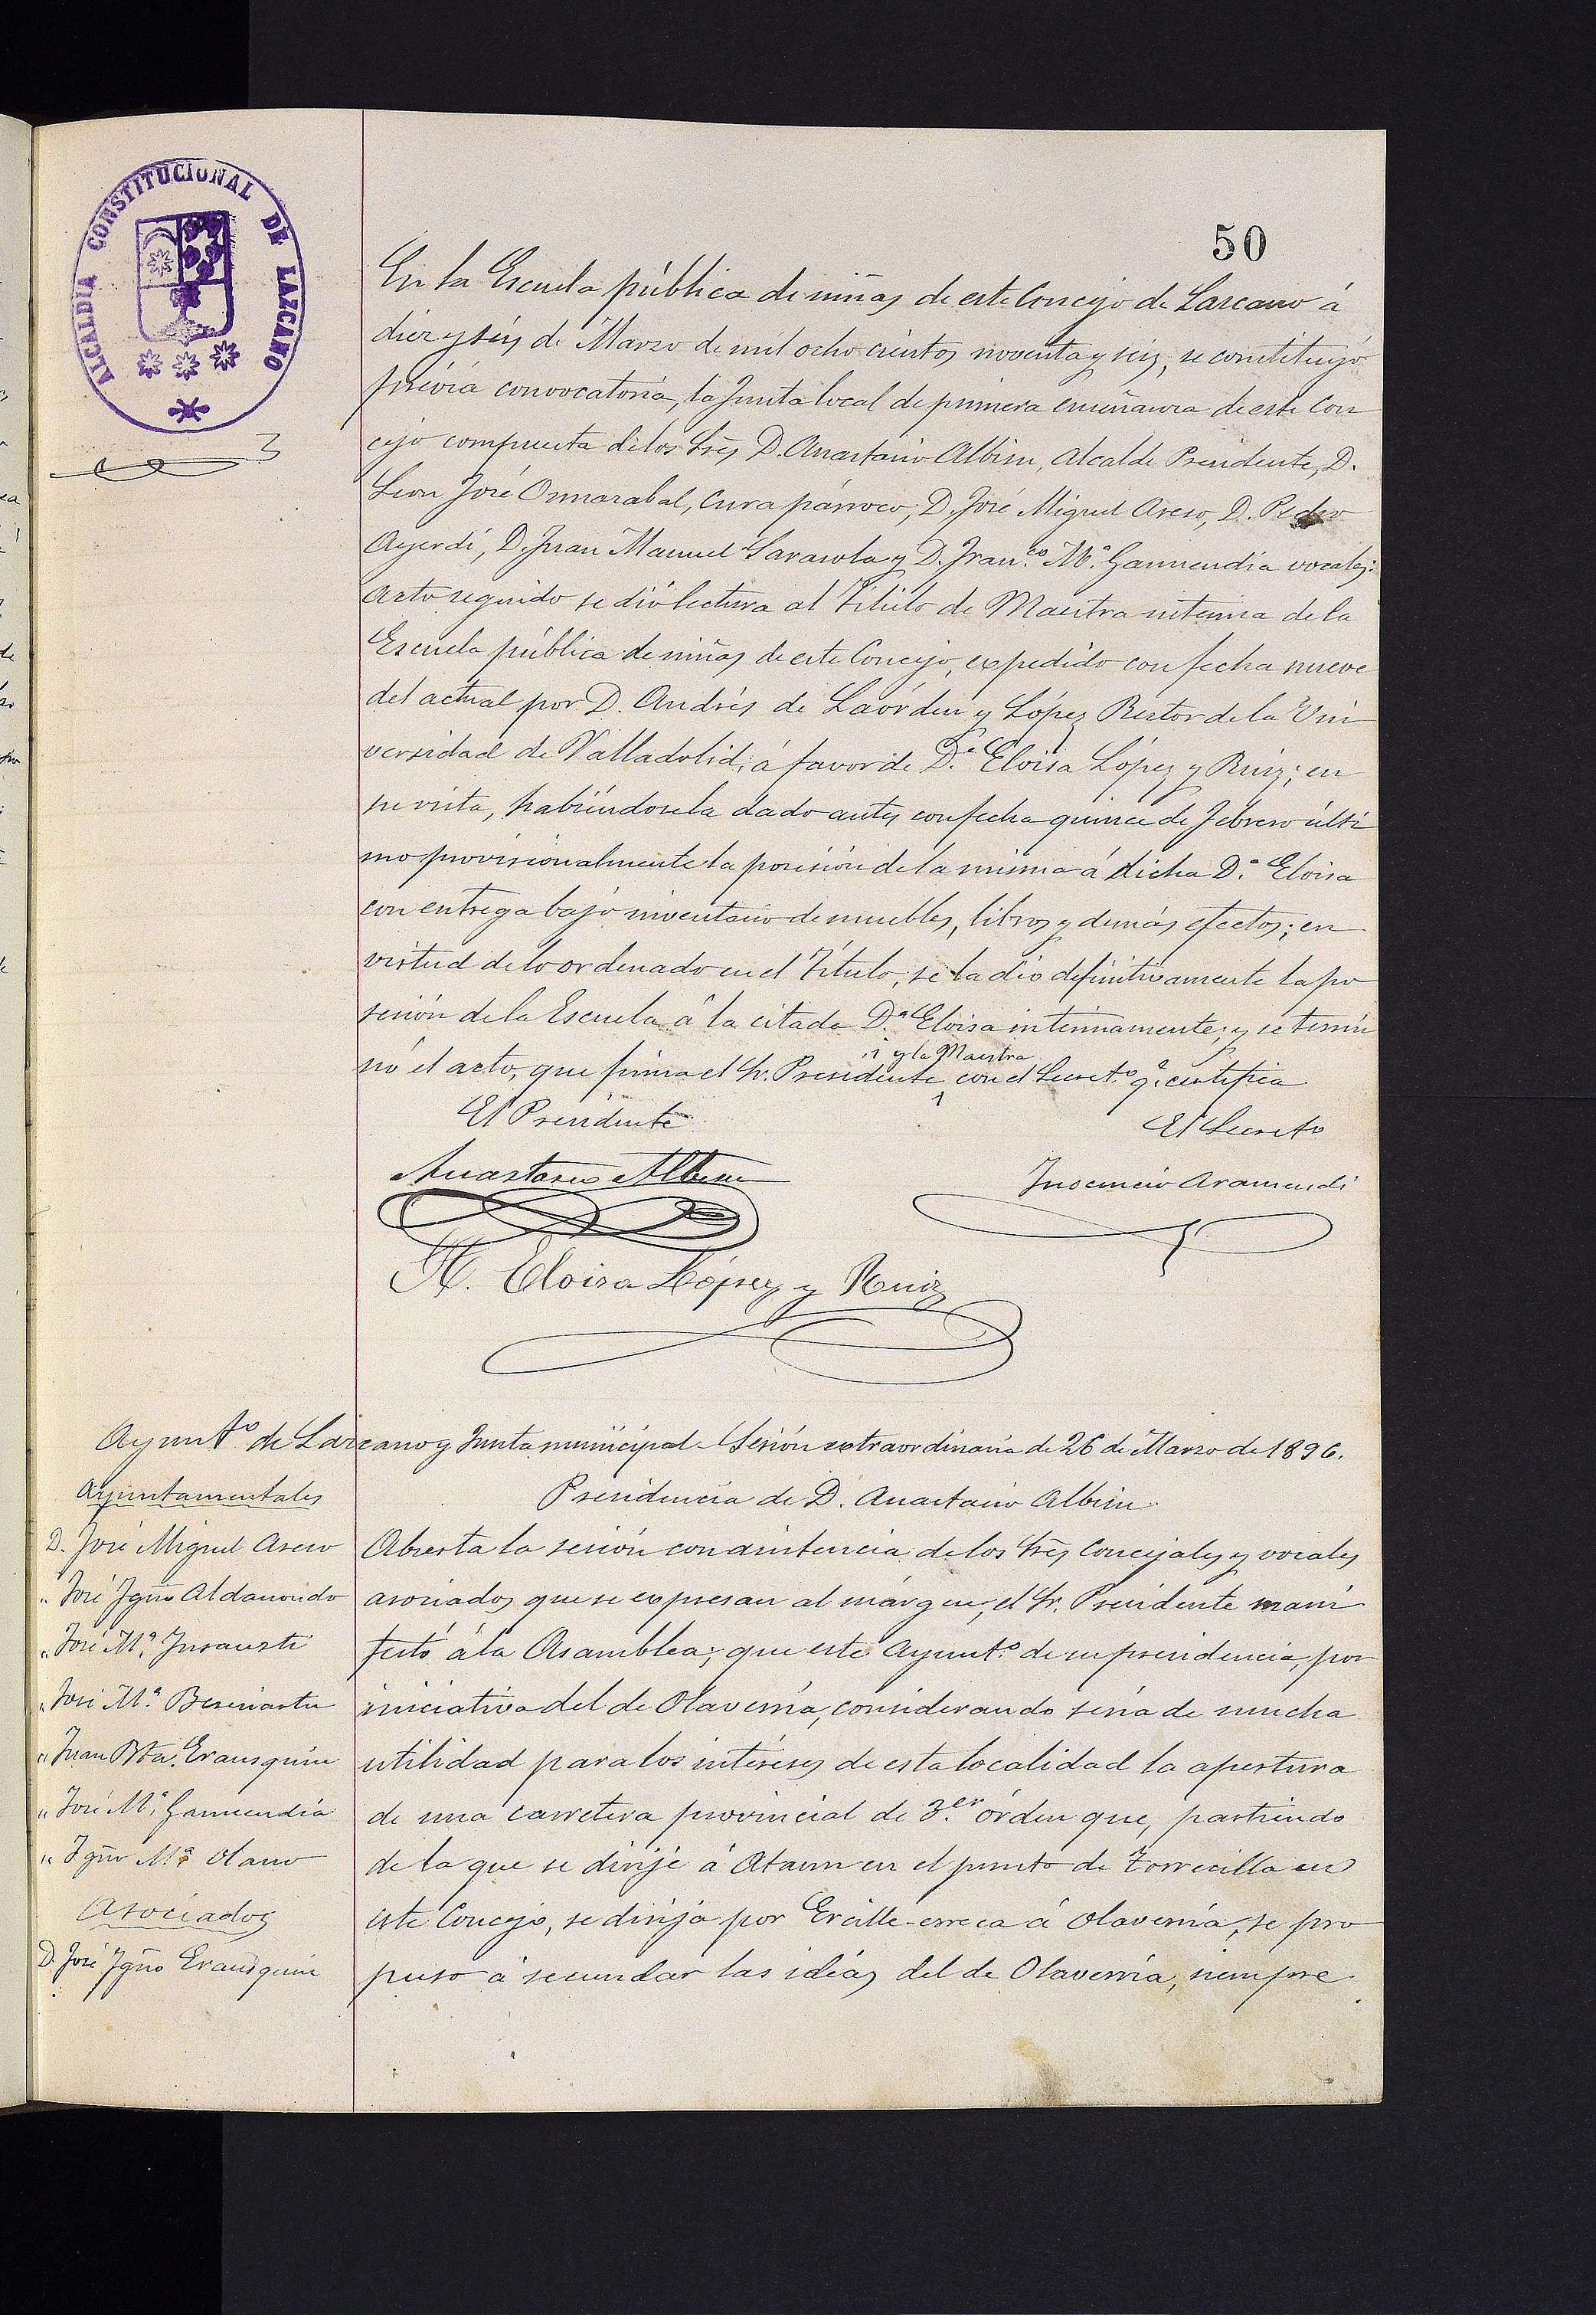 ALCALDIA CONSTITUCIONAL DE LAZCANO
50
En la Escuela pública de niñas de este Concejo de Lazcano á
diez y séis de Marzo de mil ocho cientos noventa y seis, se constituyó
prévia convocatoria, la Junta local de primera enseñanza de este Con
cejo compuesta de los Srẽs D. Anastasio Albisu, Alcalde Presidente, D.
Leon José Onnarabal, Cura párroco, D. José Miguel Areso, D. Pedro
Ayerdi, D. Juan Manuel Sarasola y D. Fran.co M.ª Garmendia vocales:
acto seguido se dió lectura al Título de Maestra interina de la
Escuela pública de niñas de este Concejo, expedido con fecha nueve
del actual por D. Andrés de Laórden y López Rector de la Uni
versidad de Valladolid, á favor de D.ª Eloisa López y Ruiz; en
su vista, habiéndosela dado antes con fecha quince de Febrero últi
mo provisionalmente la posesión de la misma á dicha D.ª Eloisa
con entrega bajo inventario de muebles, libros y demás efectos; en
virtud de lo ordenado en el Título, se la dió definitivamente la po
sesión de la Escuela á la citada D.ª Eloisa interinamente; y se termi
y la Maestra
nó el acto, que firma el Sr. Presidente con el Secret.º q.e certifica
El Presidente
El Secreto
Anastasio Albisu
Inocencio Aramendi
H. Eloisa López y Ruiz
Ayunt.º de Lazcano y Junta municipal - Sesión extraordinaria de 26 de Marzo de 1896.
Presidencia de D. Anastasio Albisu
Ayuntamentales
D. José Miguel Areso
" José Ygño Aldanondo
" José M.ª Insausti
" José M.ª Beseiastu
" Juan Bta. Erausquin
" José M.ª Garmendia
" Ygño M.ª Olano
Asociados
D. José Ygño Erausquin
Abierta la sesión con asistencia de los Srẽs Concejales y vocales
asociados que se expresan al márgen, el Sr. Presidente mani
festó á la Asamblea; que este Ayunt.º de su presidencia, por
iniciativa del de Olaverría, considerando sería de mucha
utilidad para los intéreses de esta localidad la apertura
de una carretera provincial de 3.er órden que, partiendo
de la que se dirije á Ataun en el punto de Torrecilla en
este Concejo, se dirija por Ercille-erreca á Olaverría, se pro
puso á secundar las idéas del de Olaverría, siempre